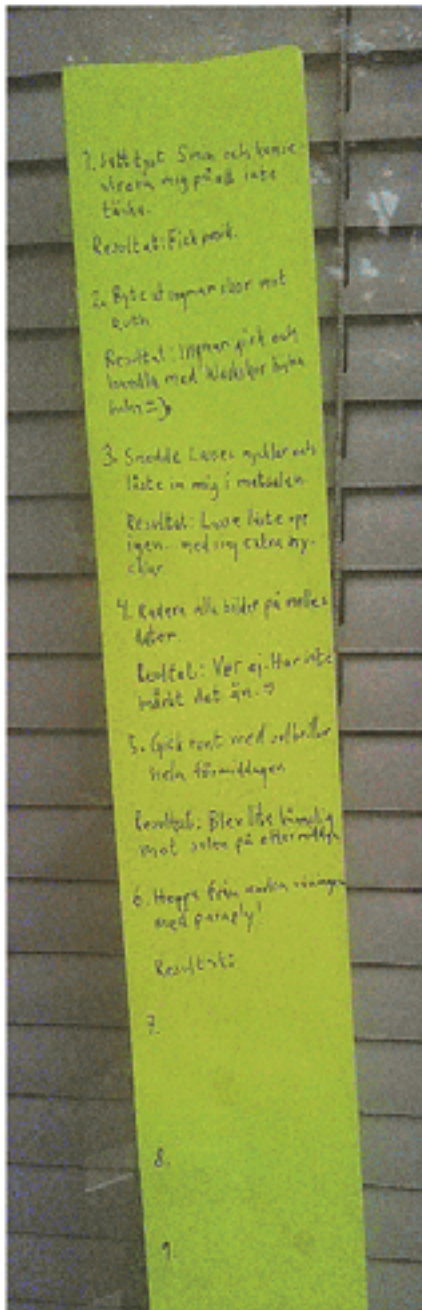 1. Sitt tyst 5min och konce-
trera mig på att inte
tänka.
Resultat: Fick panik.
2. Byte ut ingmar skor mot
Resultat: Ingmar gick och
handla med
3. Snodde Lasses nycklar och
låste in mig i matsalen.
Resultat: Lasse låste upp
igen... med sin extra ny-
cklar.
4. Radera alla bilder på
dator.
Resultat: Vet ej. Har inte
märkt det än.
5. Gick runt med solbrillor
hela förmiddagen
Resultat: Blev lite känslig
mot solen på eftermiddagen
6. Hoppa från andra våningen
med paraply!
Resultat:
7.
8.
9.